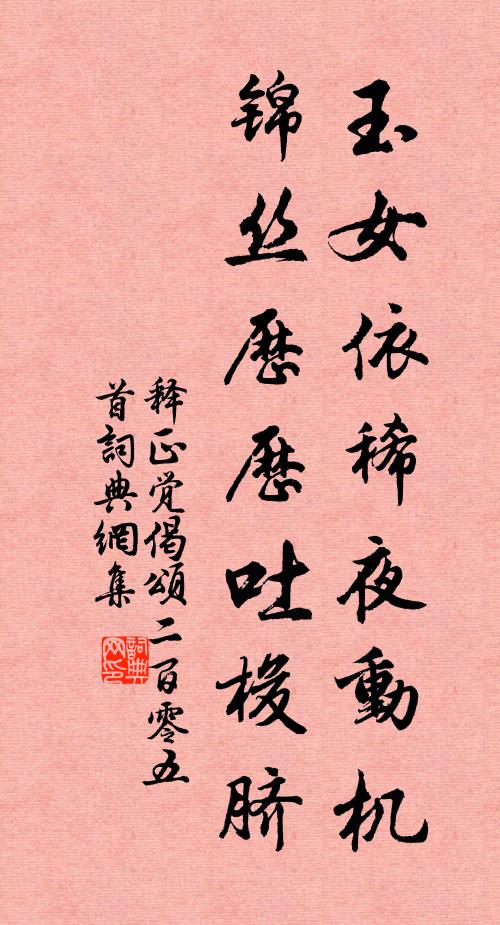 玉女依稀夜動机
锦丝歷歷吐梭脐
释正覺偈頌二百零五
首詞典網集
詞典
网印